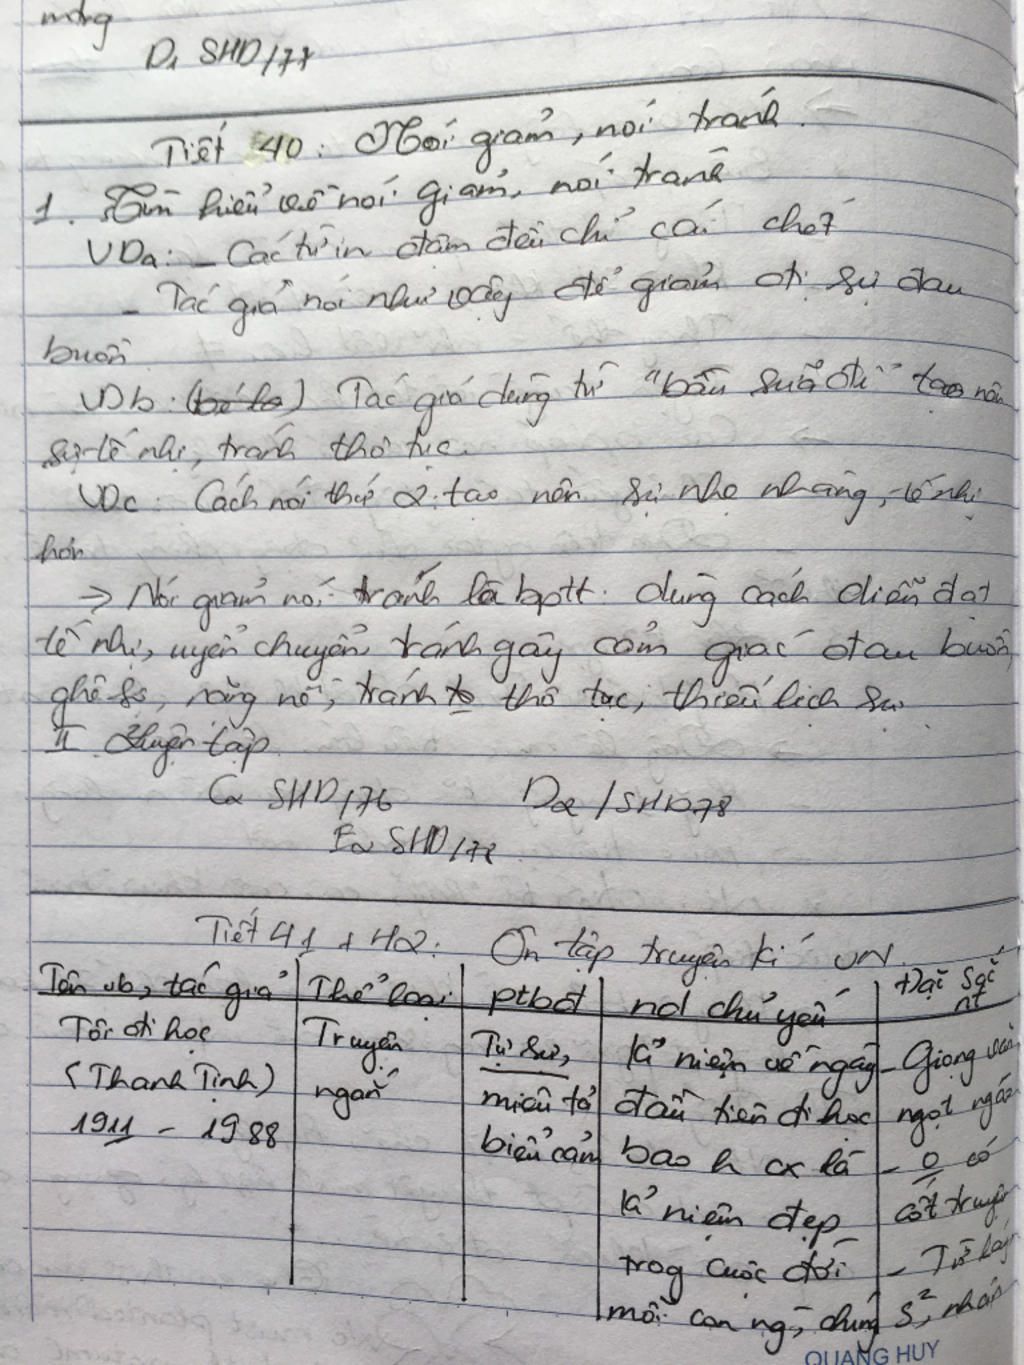 D1 SHD/77
Tiết 40: Nói giảm, nói tránh
1. Tìm hiểu về nói giảm, nói tránh
VDa: - Các từ in đậm đều chỉ cái chết
- Tác giả nói như vậy để giảm đi sự đau
buồn
VDb: (bé là) Tác giả dùng từ "bầu sữa đi" tạo nên
sự tế nhị, tránh thô tục.
VDc: Cách nói thứ 2 tạo nên sự nhẹ nhàng, tế nhị
hơn
→ Nói giảm nói tránh là bptt dùng cách diễn đạt
tế nhị, uyển chuyển, tránh gây cảm giác đau buồn,
ghê sợ, nặng nề, tránh thô tục, thiếu lịch sự
II Luyện tập
C2 SHD/76 D2/SHD78
E2 SHD/78
Tiết 41 + 42: Ôn tập truyện kí VN
Tên vb, tác giả Thể loại ptbđ nd chủ yếu Đặc sắc
nt
Tôi đi học Truyện Tự sự, kỉ niệm về ngày - Giọng văn
(Thanh Tịnh) ngắn miêu tả đầu tiên đi học ngọt ngào
1911 - 1988 biểu cảm bao h cx là - 0 có
kỉ niệm đẹp cốt truyện
trog cuộc đời - Từ láy
mỗi con ng, S², nhân
QUANG HUY